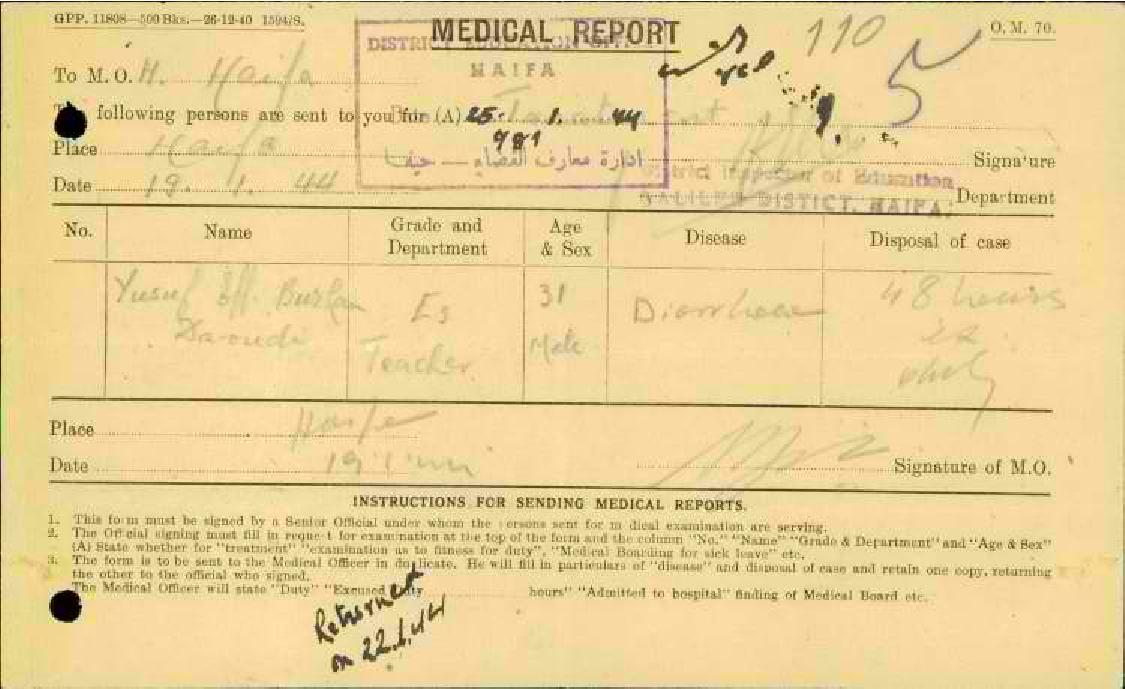 GPP. 11808—500 Bks.—26-12-40 1594/S.
MEDICAL REPORT
O. M. 70.
110
5
DISTRICT EDUCATION OFF.
HAIFA
To M. O. H. Haifa
The following persons are sent to you for (A) Treatment
25. 1. 44
981
ادارة معارف القضاء — حيفا
Place Haifa
Signature
Date 19. 1. 44
District Inspector of Education
GALILEE DISTICT, HAIFA.
Department
No. Name Grade and Department Age & Sex Disease Disposal of case
Yusuf Eff. Burhan 31 Diarrhoea 48 hours
Daoudi Teacher Male ex
duty
Place Haifa
Date 19.1.44 Signature of M.O.
INSTRUCTIONS FOR SENDING MEDICAL REPORTS.
1. This form must be signed by a Senior Official under whom the persons sent for medical examination are serving.
2. The Official signing must fill in request for examination at the top of the form and the column "No." "Name" "Grade & Department" and "Age & Sex"
(A) State whether for "treatment" "examination as to fitness for duty", "Medical Boarding for sick leave" etc.
3. The form is to be sent to the Medical Officer in duplicate. He will fill in particulars of "disease" and disposal of case and retain one copy, returning
the other to the official who signed.
The Medical Officer will state "Duty" "Excused Duty ........ hours" "Admitted to hospital" finding of Medical Board etc.
Returned
on 22.1.44